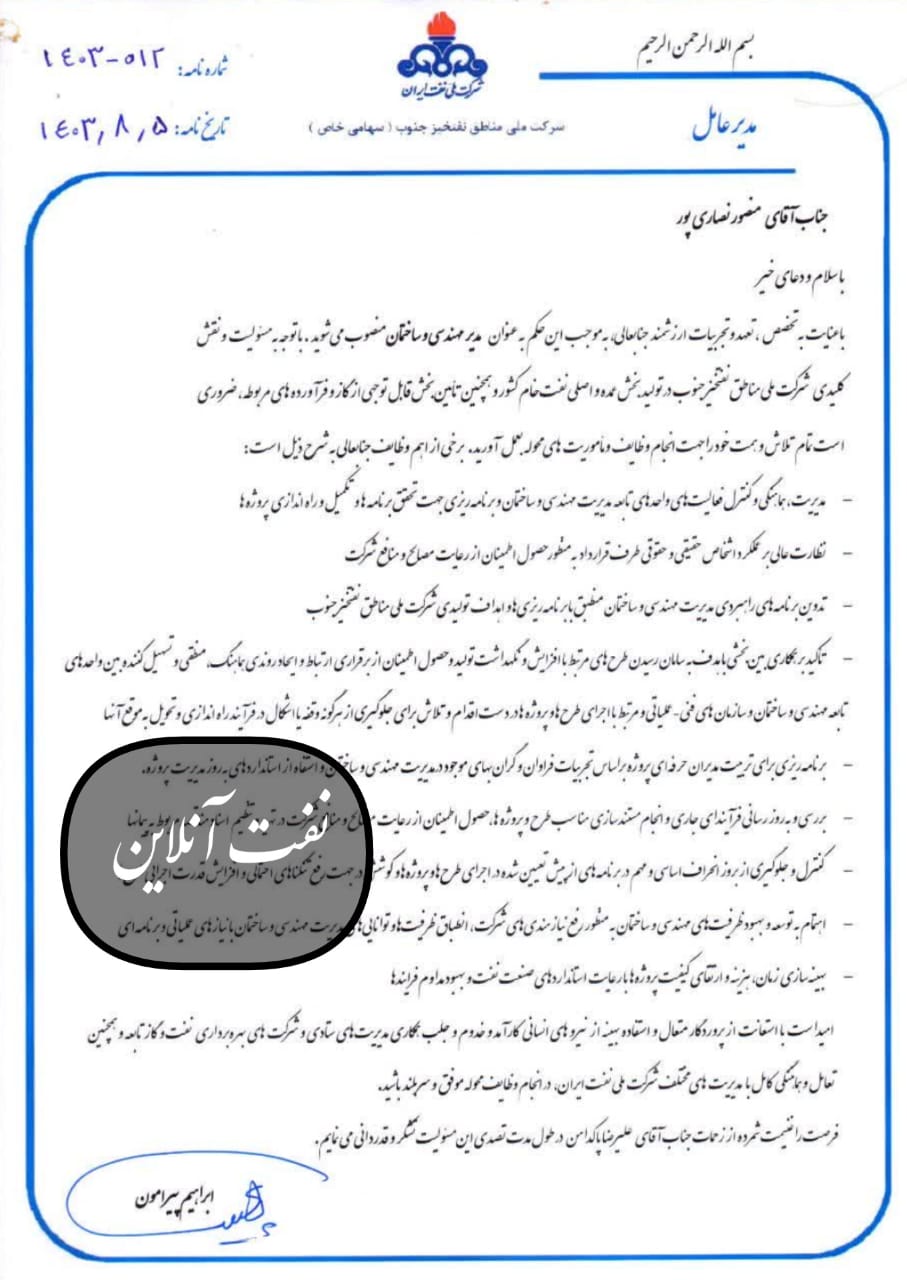 بسم الله الرحمن الرحیم
شرکت ملی نفت ایران
شماره نامه: ۱۴۰۳-۵۱۲
مدیرعامل
شرکت ملی مناطق نفتخیز جنوب ( سهامی خاص )
تاریخ نامه: ۱۴۰۳,۸,۵
جناب آقای منصور نصاری پور
باسلام و دعای خیر
باعنایت به تخصص ، تعهد و تجربیات ارزشمند جنابعالی، به موجب این حکم به عنوان مدیر مهندسی و ساختمان منصوب می شوید . باتوجه به مسئولیت و نقش
کلیدی شرکت ملی مناطق نفتخیز جنوب در تولید بخش عمده و اصلی نفت خام کشور و همچنین تأمین بخش قابل توجهی از گاز و فرآورده های مربوطه، ضروری
است تمام تلاش و همت خود را جهت انجام وظایف و مأموریت های محوله بعمل آورید. برخی از اهم وظایف جنابعالی به شرح ذیل است:
- مدیریت، هماهنگی و کنترل فعالیت‌های واحدهای تابعه مدیریت مهندسی و ساختمان و برنامه ریزی جهت تحقق برنامه ها و تکمیل و راه اندازی پروژه ها
- نظارت عالی بر عملکرد اشخاص حقیقی و حقوقی طرف قرارداد به منظور حصول اطمینان از رعایت مصالح و منافع شرکت
- تدوین برنامه های راهبردی مدیریت مهندسی و ساختمان منطبق با برنامه ریزی ها و اهداف تولیدی شرکت ملی مناطق نفتخیز جنوب
- تاکید بر همکاری بین بخشی با هدف به سامان رسیدن طرح های مرتبط با افزایش و نگهداشت تولید و حصول اطمینان از برقراری ارتباط و ایجاد روندی هماهنگ، منطقی و تسهیل کننده بین واحدهای
تابعه مهندسی و ساختمان و سازمان های فنی-عملیاتی و مرتبط با اجرای طرح ها و پروژه ها در دست اقدام و تلاش برای جلوگیری از هرگونه وقفه یا اشکال در فرآیند راه اندازی و تحویل به موقع آنها
- برنامه ریزی برای تربیت مدیران حرفه ای پروژه براساس تجربیات فراوان و گران بهای موجود در مدیریت مهندسی و ساختمان و استفاه از استانداردهای به روز مدیریت پروژه.
- بررسی و به روز رسانی فرآیندای جاری و انجام مستندسازی مناسب طرح و پروژه ها، حصول اطمینان از رعایت مصالح و منافع شرکت در تهیه و تنظیم اسناد مربوط به پیمانها
- کنترل و جلوگیری از بروز انحراف اساسی و مهم در برنامه های از پیش تعیین شده در اجرای طرح ها و پروژه ها و کوشش در جهت رفع تنگناهای احتمالی و افزایش قدرت اجرایی
- اهتمام به توسعه و بهبود ظرفیت‌های مهندسی و ساختمان به منظور رفع نیازمندی های شرکت، انطباق ظرفیت‌ها و توانایی های مدیریت مهندسی و ساختمان با نیازهای عملیاتی و برنامه ای
- بهینه سازی زمان، هزینه و ارتقای کیفیت پروژه ها با رعایت استانداردهای صنعت نفت و بهبود مداوم فرایندها
امید است با استعانت از پروردگار متعال و استفاده بهینه از نیروهای انسانی کارآمد و خدوم و جلب همکاری مدیریت های ستادی و شرکت های بهره برداری نفت و گاز تابعه و همچنین
تعامل و هماهنگی کامل با مدیریت های مختلف شرکت ملی نفت ایران، در انجام وظایف محوله موفق و سربلند باشید.
فرصت را غنیمت شمرده از زحمات جناب آقای علیرضا پاکدامن در طول مدت تصدی این مسئولیت تشکر و قدردانی می نمایم.
ابراهیم پیرامون
نفت آنلاین